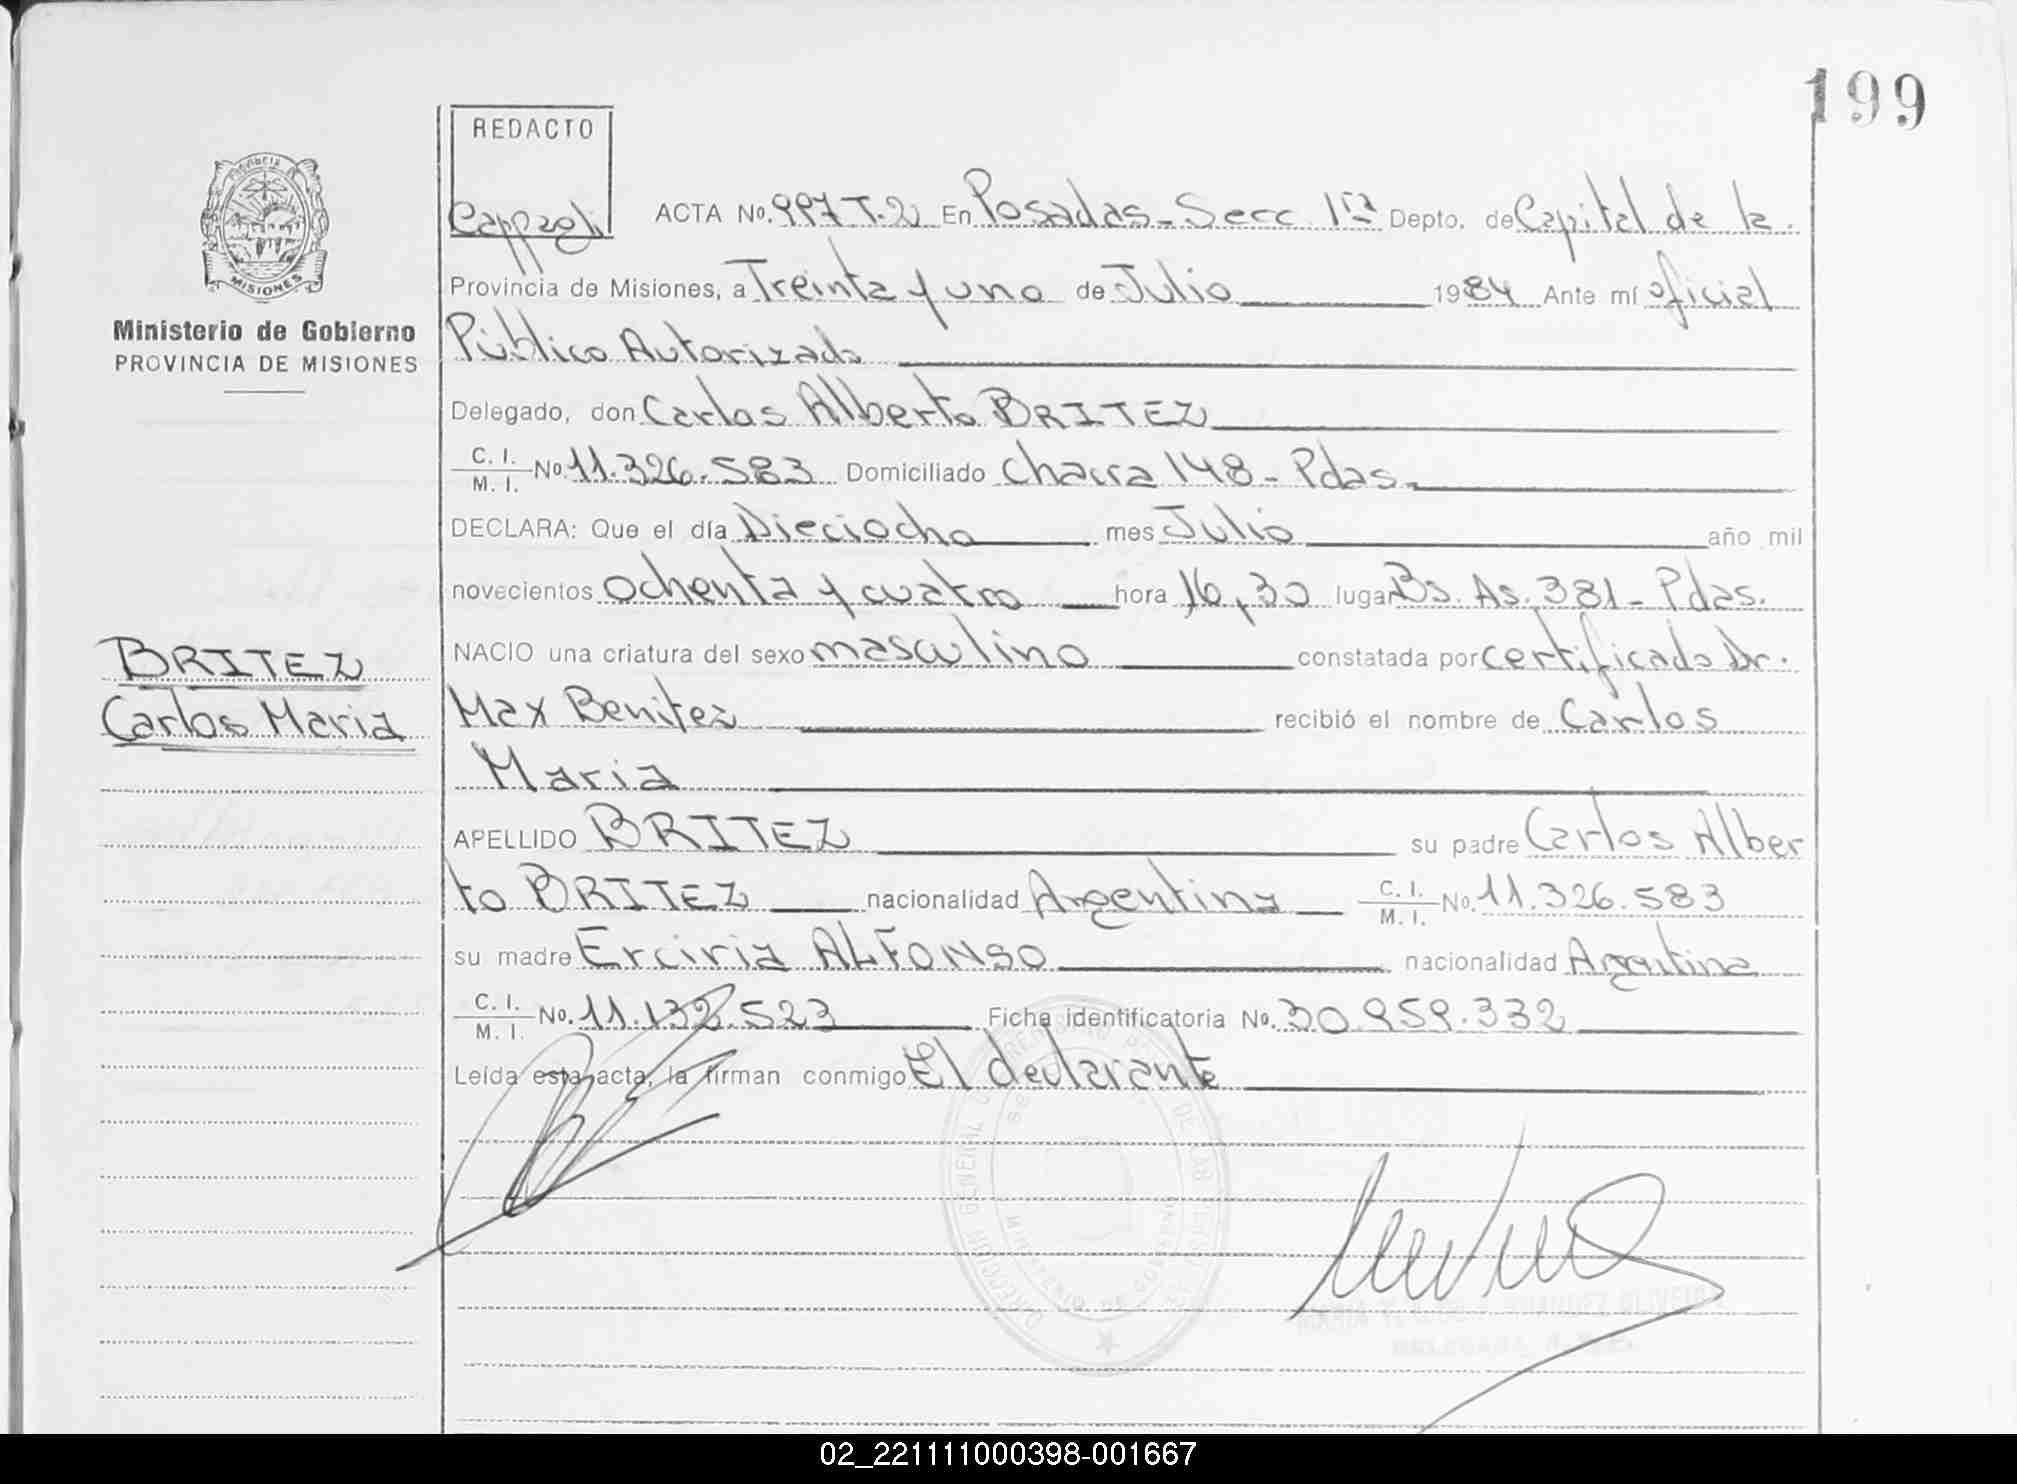 199
REDACTO
Cappagli
PROVINCIA
MISIONES
Ministerio de Gobierno
PROVINCIA DE MISIONES
ACTA No. 997 T.2 En Posadas - Secc 1ra Depto. de Capital de la
Provincia de Misiones, a Treinta y uno de Julio 1984 Ante mí oficial
Público Autorizado
Delegado, don Carlos Alberto BRITEZ
C. I.
M. I. No. 11.326.583 Domiciliado Chacra 148 - Pdas.
DECLARA: Que el día Dieciocho mes Julio año mil
novecientos ochenta y cuatro hora 16,30 lugar Bs. As. 381 - Pdas.
NACIO una criatura del sexo masculino constatada por certificado Dr.
BRITEZ
Carlos Maria
Max Benitez recibió el nombre de Carlos
Maria
APELLIDO BRITEZ su padre Carlos Alber
to BRITEZ nacionalidad Argentina C. I.
M. I. No. 11.326.583
su madre Erciria ALFONSO nacionalidad Argentina
C. I.
M. I. No. 11.132.523 Ficha identificatoria No. 30.959.332
Leída esta acta, la firman conmigo El declarante
DIRECCION GENERAL DEL REGISTRO P DE LAS PERS
MINISTERIO DE GOBIERNO
02_221111000398-001667